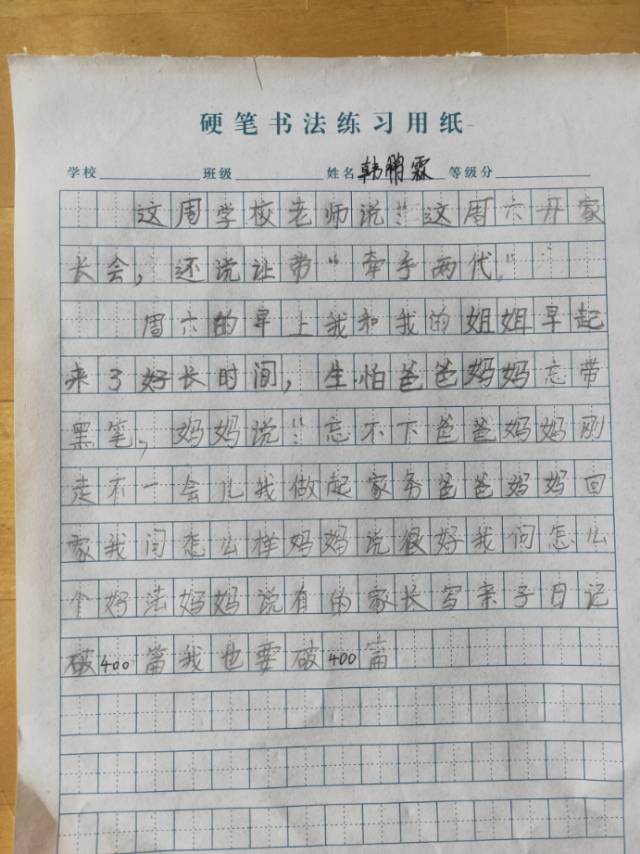 硬笔书法练习用纸
学校 班级 姓名 韩鹏霖 等级分
这周学校老师说:“这周六开家
长会,还说让带“牵手两代”
周六的早上我和我的姐姐早起
来了好长时间,生怕爸爸妈妈忘带
黑笔,妈妈说:“忘不下爸爸妈妈刚
走不一会儿我做起家务爸爸妈妈回
家我问怎么样妈妈说很好我问怎么
个好法妈妈说有的家长写亲子日记
破400篇我也要破400篇